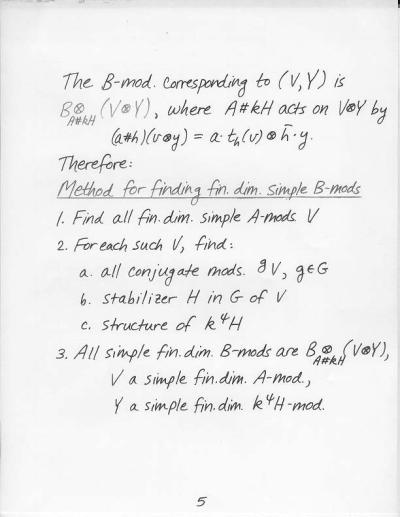 The B-mod. corresponding to (V,Y) is
B⊗_{A#kH} (V⊗Y), where A#kH acts on V⊗Y by
(a#h)(v⊗y) = a·t_h(v) ⊗ h̄·y.
Therefore:
Method for finding fin. dim. simple B-mods
1. Find all fin. dim. simple A-mods V
2. For each such V, find:
a. all conjugate mods. ᵍV, g∈G
b. stabilizer H in G of V
c. structure of k^ψH
3. All simple fin. dim. B-mods are B⊗_{A#kH}(V⊗Y),
V a simple fin. dim. A-mod.,
Y a simple fin. dim. k^ψH-mod.
5